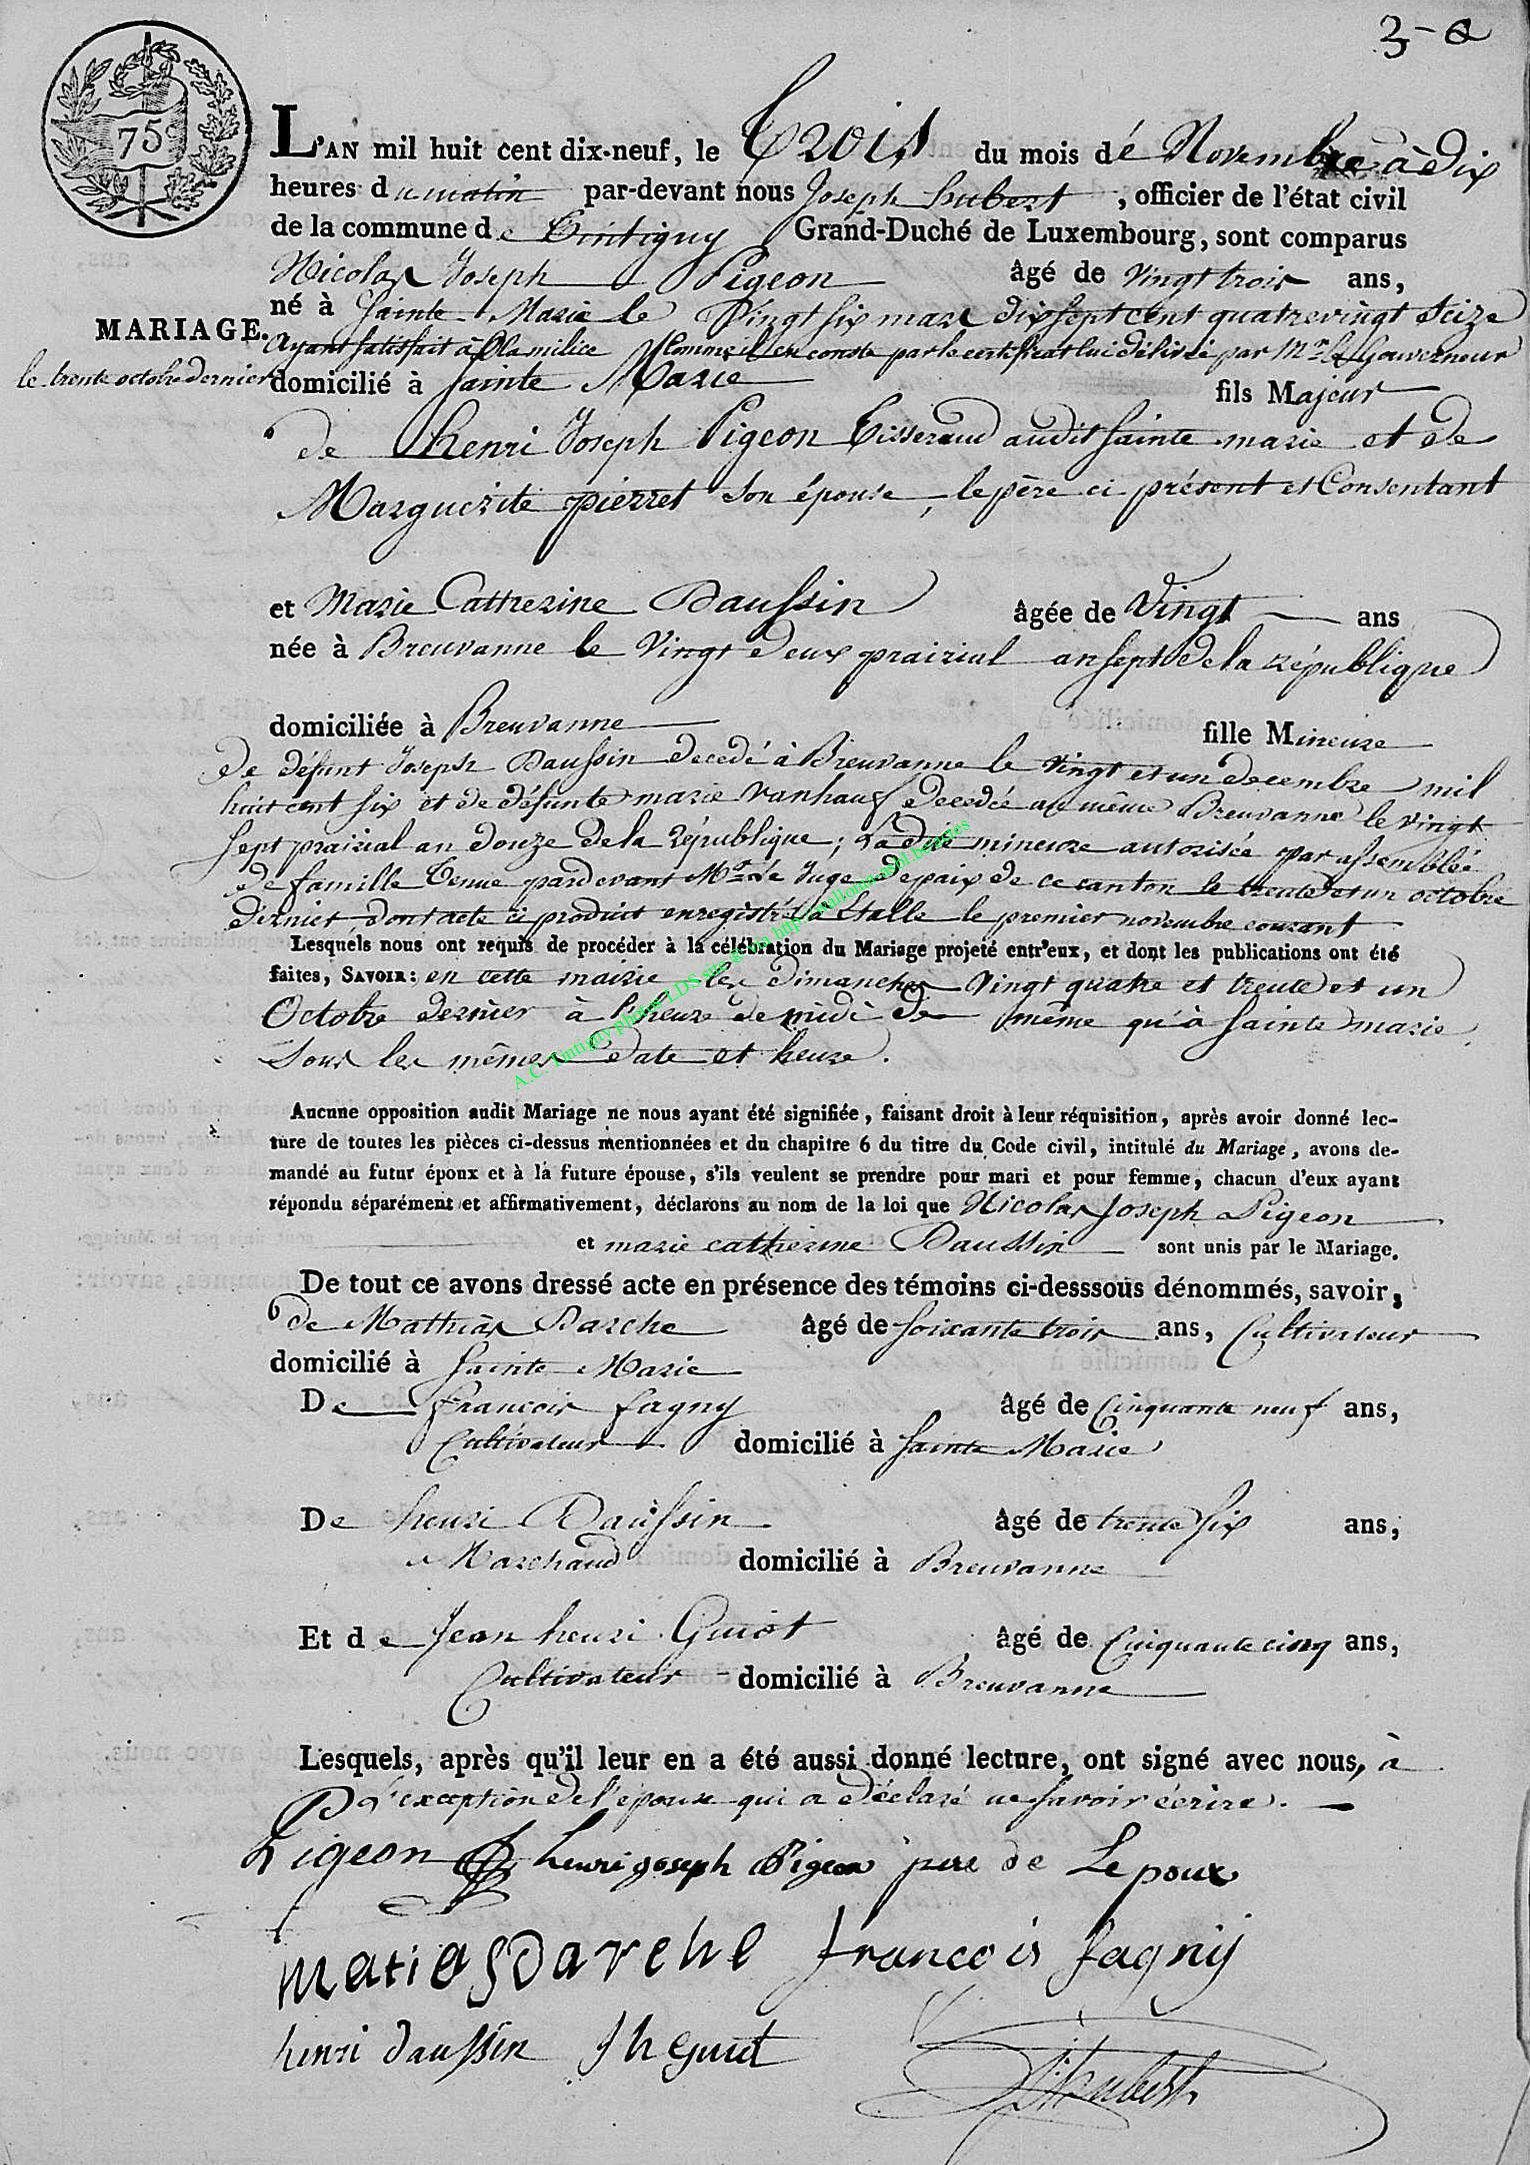 3-
75c
L'AN mil huit cent dix-neuf, le Trois du mois de Novembre à dix
heures du matin par-devant nous Joseph hubert, officier de l'état civil
de la commune de Tintigny Grand-Duché de Luxembourg, sont comparus
Nicolas Joseph Pigeon âgé de vingt trois ans,
né à Sainte Marie le Vingt six mars dix sept cent quatrevingt seize
MARIAGE.
ayant satisfait à la milice Comme il en conste par le certificat lui délivré par Mr le Gouverneur
le trente octobre dernier
domicilié à Sainte Marie fils Majeur
de henri Joseph Pigeon Tisserand audit Sainte marie et de
Marguerite pierret son épouse, le père ci présent et Consentant
et Marie Catherine Daussin âgée de Vingt ans
née à Breuvanne le Vingt deux prairial an sept de la république
domiciliée à Breuvanne fille Mineure
De défunt Joseph Daussin decedé à Breuvanne le vingt et un decembre mil
huit cent six et de défunte marie Vanhauf decedée au même Breuvanne le vingt
sept prairial an douze de la république; La dite mineure autorisée par assemblée
de famille Tenue pardevant Mr le Juge de paix de ce canton le trente et un octobre
dernier, dont acte ci produit enregistré à Etalle le premier novembre courant
Lesquels nous ont requis de procéder à la célébration du Mariage projeté entr'eux, et dont les publications ont été
faites, SAVOIR: en cette mairie les Dimanches Vingt quatre et trente et un
Octobre dernier à l'heure de midi de même qu'à Sainte marie
Sous les mêmes date et heure.
A.C. Tintigny photos LDS
Aucune opposition audit Mariage ne nous ayant été signifiée, faisant droit à leur réquisition, après avoir donné lec-
ture de toutes les pièces ci-dessus mentionnées et du chapitre 6 du titre du Code civil, intitulé du Mariage, avons de-
mandé au futur époux et à la future épouse, s'ils veulent se prendre pour mari et pour femme; chacun d'eux ayant
répondu séparément et affirmativement, déclarons au nom de la loi que Nicolas Joseph Pigeon
et marie catherine Daussin sont unis par le Mariage.
De tout ce avons dressé acte en présence des témoins ci-desssous dénommés, savoir,
de Mathias Darche âgé de soixante trois ans, Cultivateur
domicilié à Sainte Marie
De francois fagny âgé de Cinquante neuf ans,
Cultivateur domicilié à Sainte Marie
De henri Daussin âgé de trente six ans,
Marchand domicilié à Breuvanne
Et de Jean henri Guiot âgé de Cinquante cinq ans,
Cultivateur domicilié à Breuvanne
Lesquels, après qu'il leur en a été aussi donné lecture, ont signé avec nous, à
L'exception de l'épouse qui a déclaré ne savoir écrire.
Pigeon henri joseph Pigeon pere de Lepoux
matias Darche francois fagny
henri daussin J h Guiot
J. Hubert